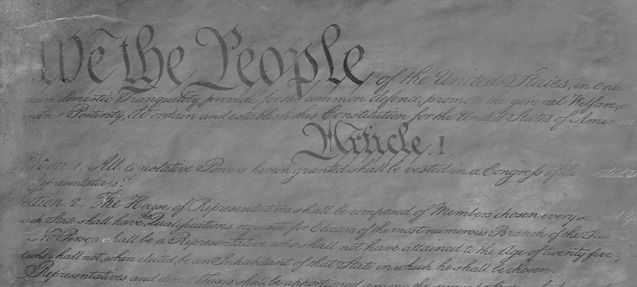 We the People of the United States, in Orde
domestic Tranquility, provide for the common defence, promote the general Welfare,
Posterity, do ordain and establish this Constitution for the United States of Amer
Article. I
Section. 1. All legislative Powers herein granted shall be vested in a Congress of the United
Representatives.
Section. 2. The House of Representatives shall be composed of Members chosen every
each State shall have the Qualifications requisite for Electors of the most numerous Branch of the State
No Person shall be a Representative who shall not have attained to the Age of twenty five
and who shall not, when elected, be an Inhabitant of that State in which he shall be chosen.
Representatives and direct Taxes shall be apportioned among the